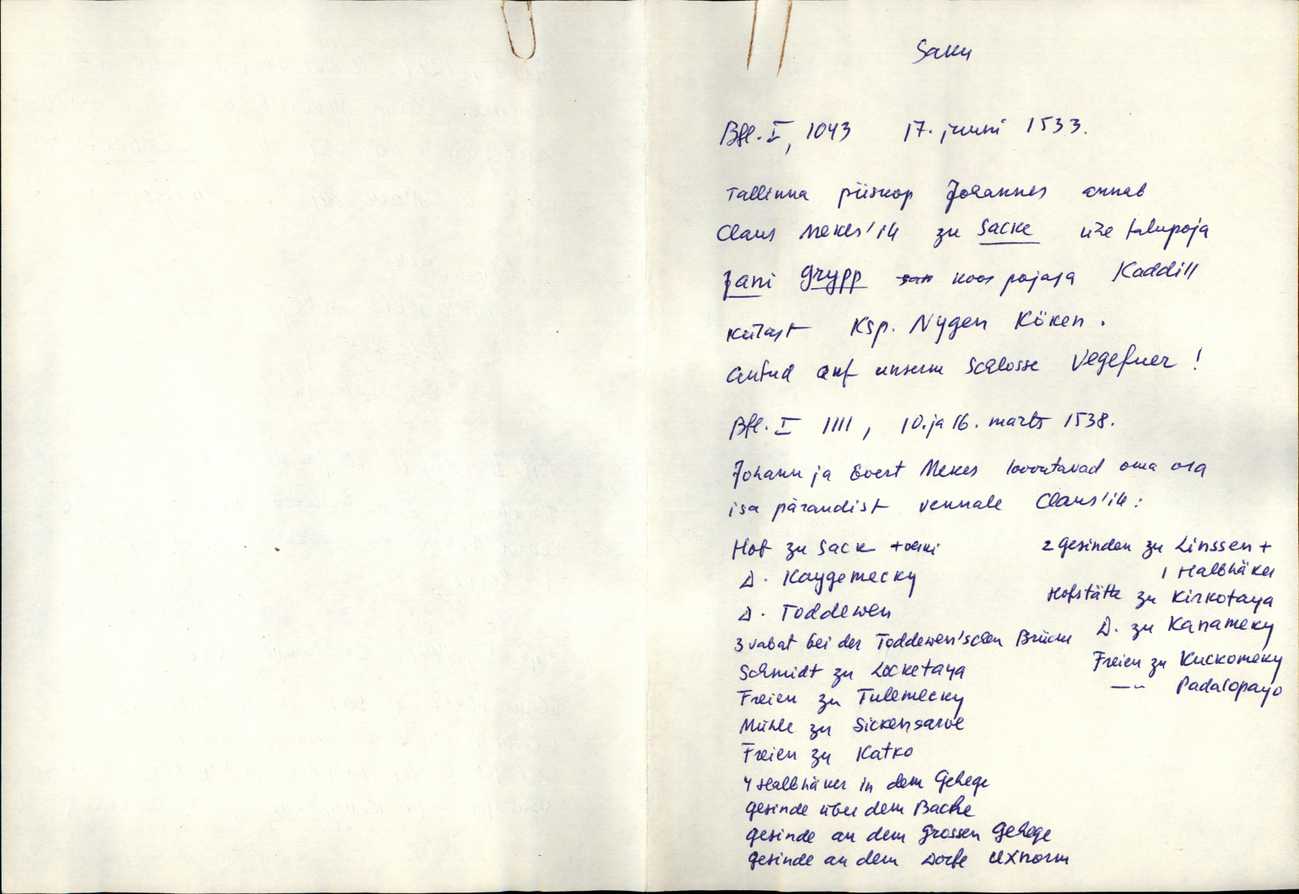 Saku
Bfl. I, 1043 17. juuni 1533.
Tallinna piiskop Johannes annab
Claus Mekes'ile zu Sacke ühe talupoja
Jani Grypp koos pojaga Kaddill
külast Ksp. Nygen Köken.
antud auf unserm Schlosse Vegefuer!
Bfl. I 1111, 10. ja 16. märts 1538.
Johann ja Evert Mekes loovutavad oma osa
isa pärandist vennale Claus'ile:
Hof zu Sack +
D. Kaygemecky
D. Toddewen
3 vabat bei der Toddewen'schen Brücke
Schmidt zu Locketaya
Freien zu Tulemecky
Mühle zu Sickensarve
Freien zu Katko
4 Halbhäker in dem Gehege
Gesinde über dem Bache
Gesinde an dem grossen Gehege
Gesinde an dem Dorfe Uxnorm
2 Gesinden zu Linssen +
1 Halbhäker
Hofstätte zu Kirkotaya
D. zu Kanameky
Freien zu Kuckomeky
—"— Padasopayo